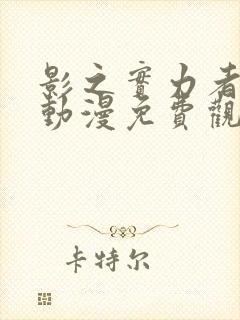 影之實力者
動漫免費觀
卡特尔